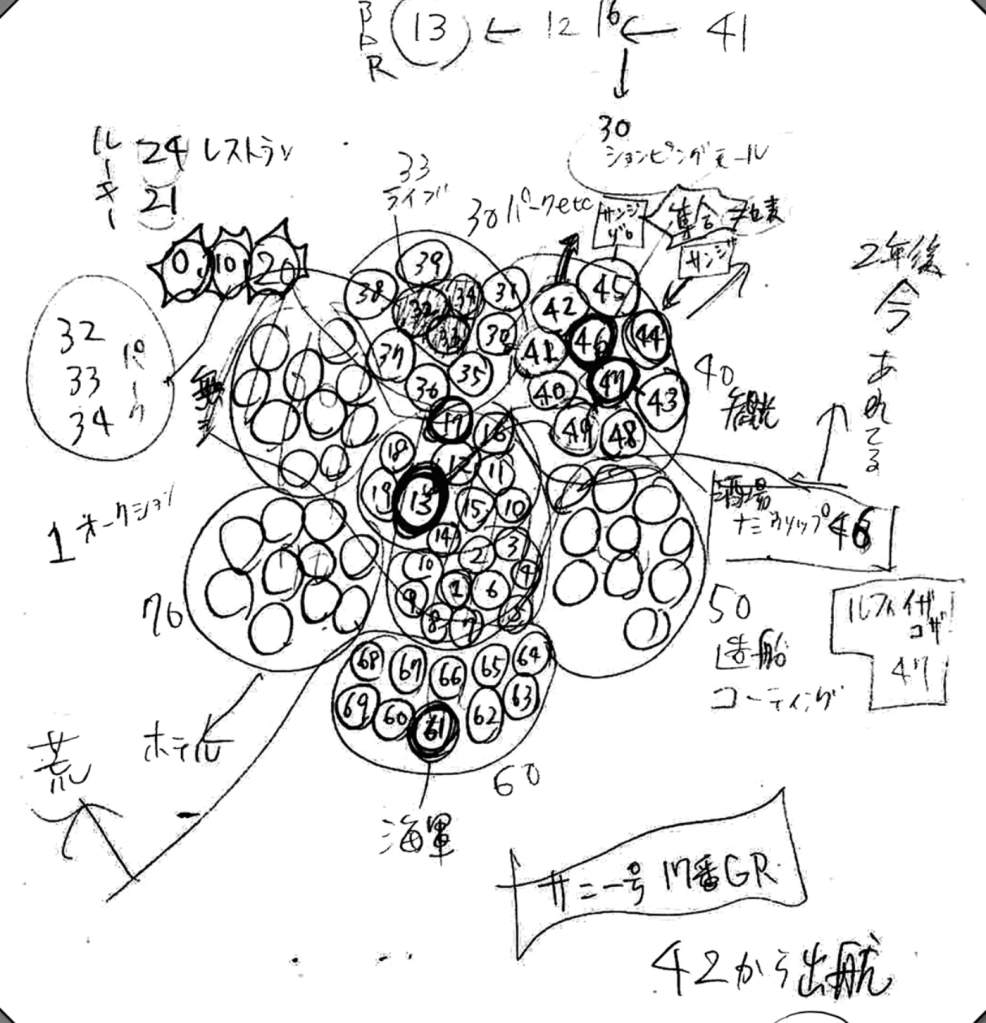 BDR 13 ← 12 16 ← 41
30
ショッピングモール
ルーキー
24 レストラン
21
33
ライブ
30 パークetc
サンジ
ゾロ
集合
サンジ
2年後
今
あれてる
0 10 20
32
33
34
パーク
39
38 31
37 35
36
42 45
41 46 44
40 47 43
49 48
40
観光
17 16
18 12 11
19 13 15 10
14 3
2 4
10 1 6
9 5
8 7
1 オークション
酒場
ナミ ウソップ 46
70
50
造船
コーティング
ルフィ イザコザ
47
68 67 66 65 64
69 60 61 62 63
60
荒
ホテル
海軍
サニー号 17番GR
42から出航